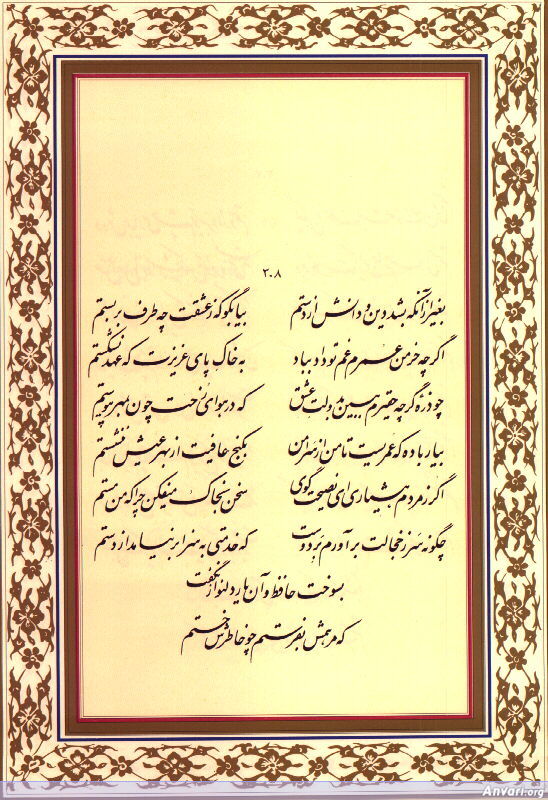 ۳۰۸
بغیر از آنکه بشد دین و دانش از دستم بیا بگو که ز عشقت چه طرف بربستم
اگر چه خرمن عمرم غم تو داد بباد به خاک پای عزیزت که عهد نشکستم
چو ذره گرچه حقیرم ببین بدولت عشق که در هوای رخت چون بمهر پیوستم
بیار باده که عمریست تا من از سر امن بکنج عافیت از بهر عیش ننشستم
اگر ز مردم هشیاری ای نصیحت گوی سخن بخاک میفکن چرا که من مستم
چگونه سر ز خجالت برآورم بر دوست که خدمتی به سزا برنیامد از دستم
بسوخت حافظ و آن یار دلنواز نگفت
که مرهمش بفرستم چو خاطرش خستم
Anvari.org